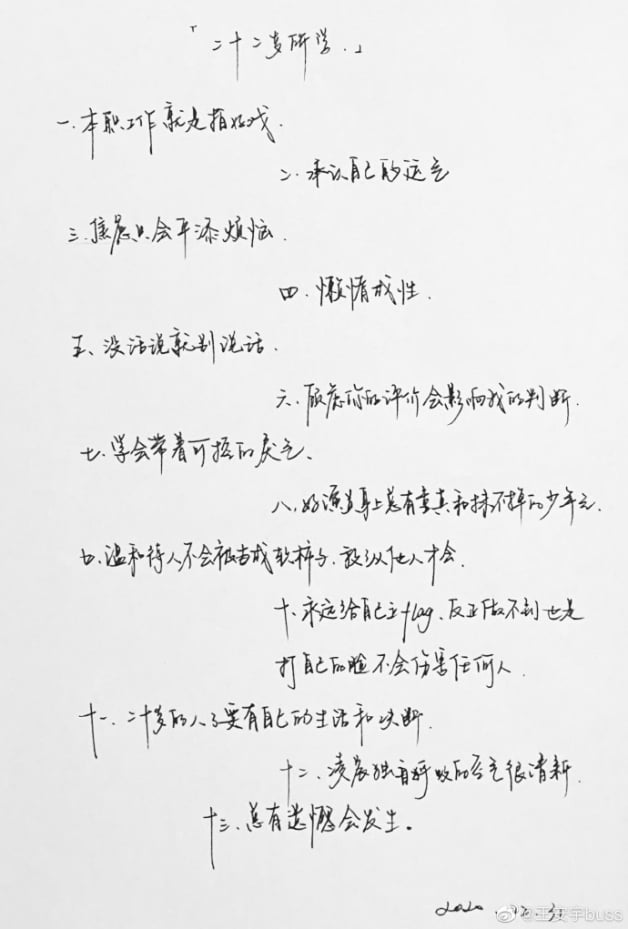 「二十二岁所学.」
一.本职工作就是拍好戏.
二.承认自己的运气
三.焦虑只会平添烦恼.
四.懒惰成性.
五、没话说就别说话.
六.顾虑你的评价会影响我的判断.
七.学会带着可控的戾气、
八.好演员身上总有童真和抹不掉的少年气.
九.温和待人不会被当成软柿子、放纵他人才会.
十.永远给自己立flag、反正做不到也是
打自己的脸不会伤害任何人.
十一.二十多的人了要有自己的生活和决断.
十二、凌晨独自呼吸的空气很清新.
十三.总有遗憾会发生。
2020.
@王安宇buss